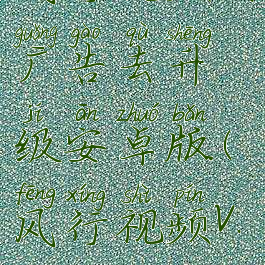 guǎng gào qù shēng
广告去升
jí ān zhuó bǎn
级安卓版(
fēng xíng shì pín
风行视频V